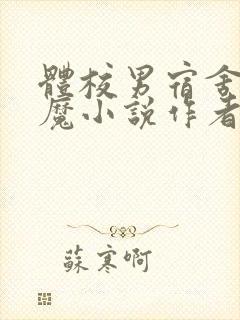 體校男宿舍
魔小說作者
蘇寒啊